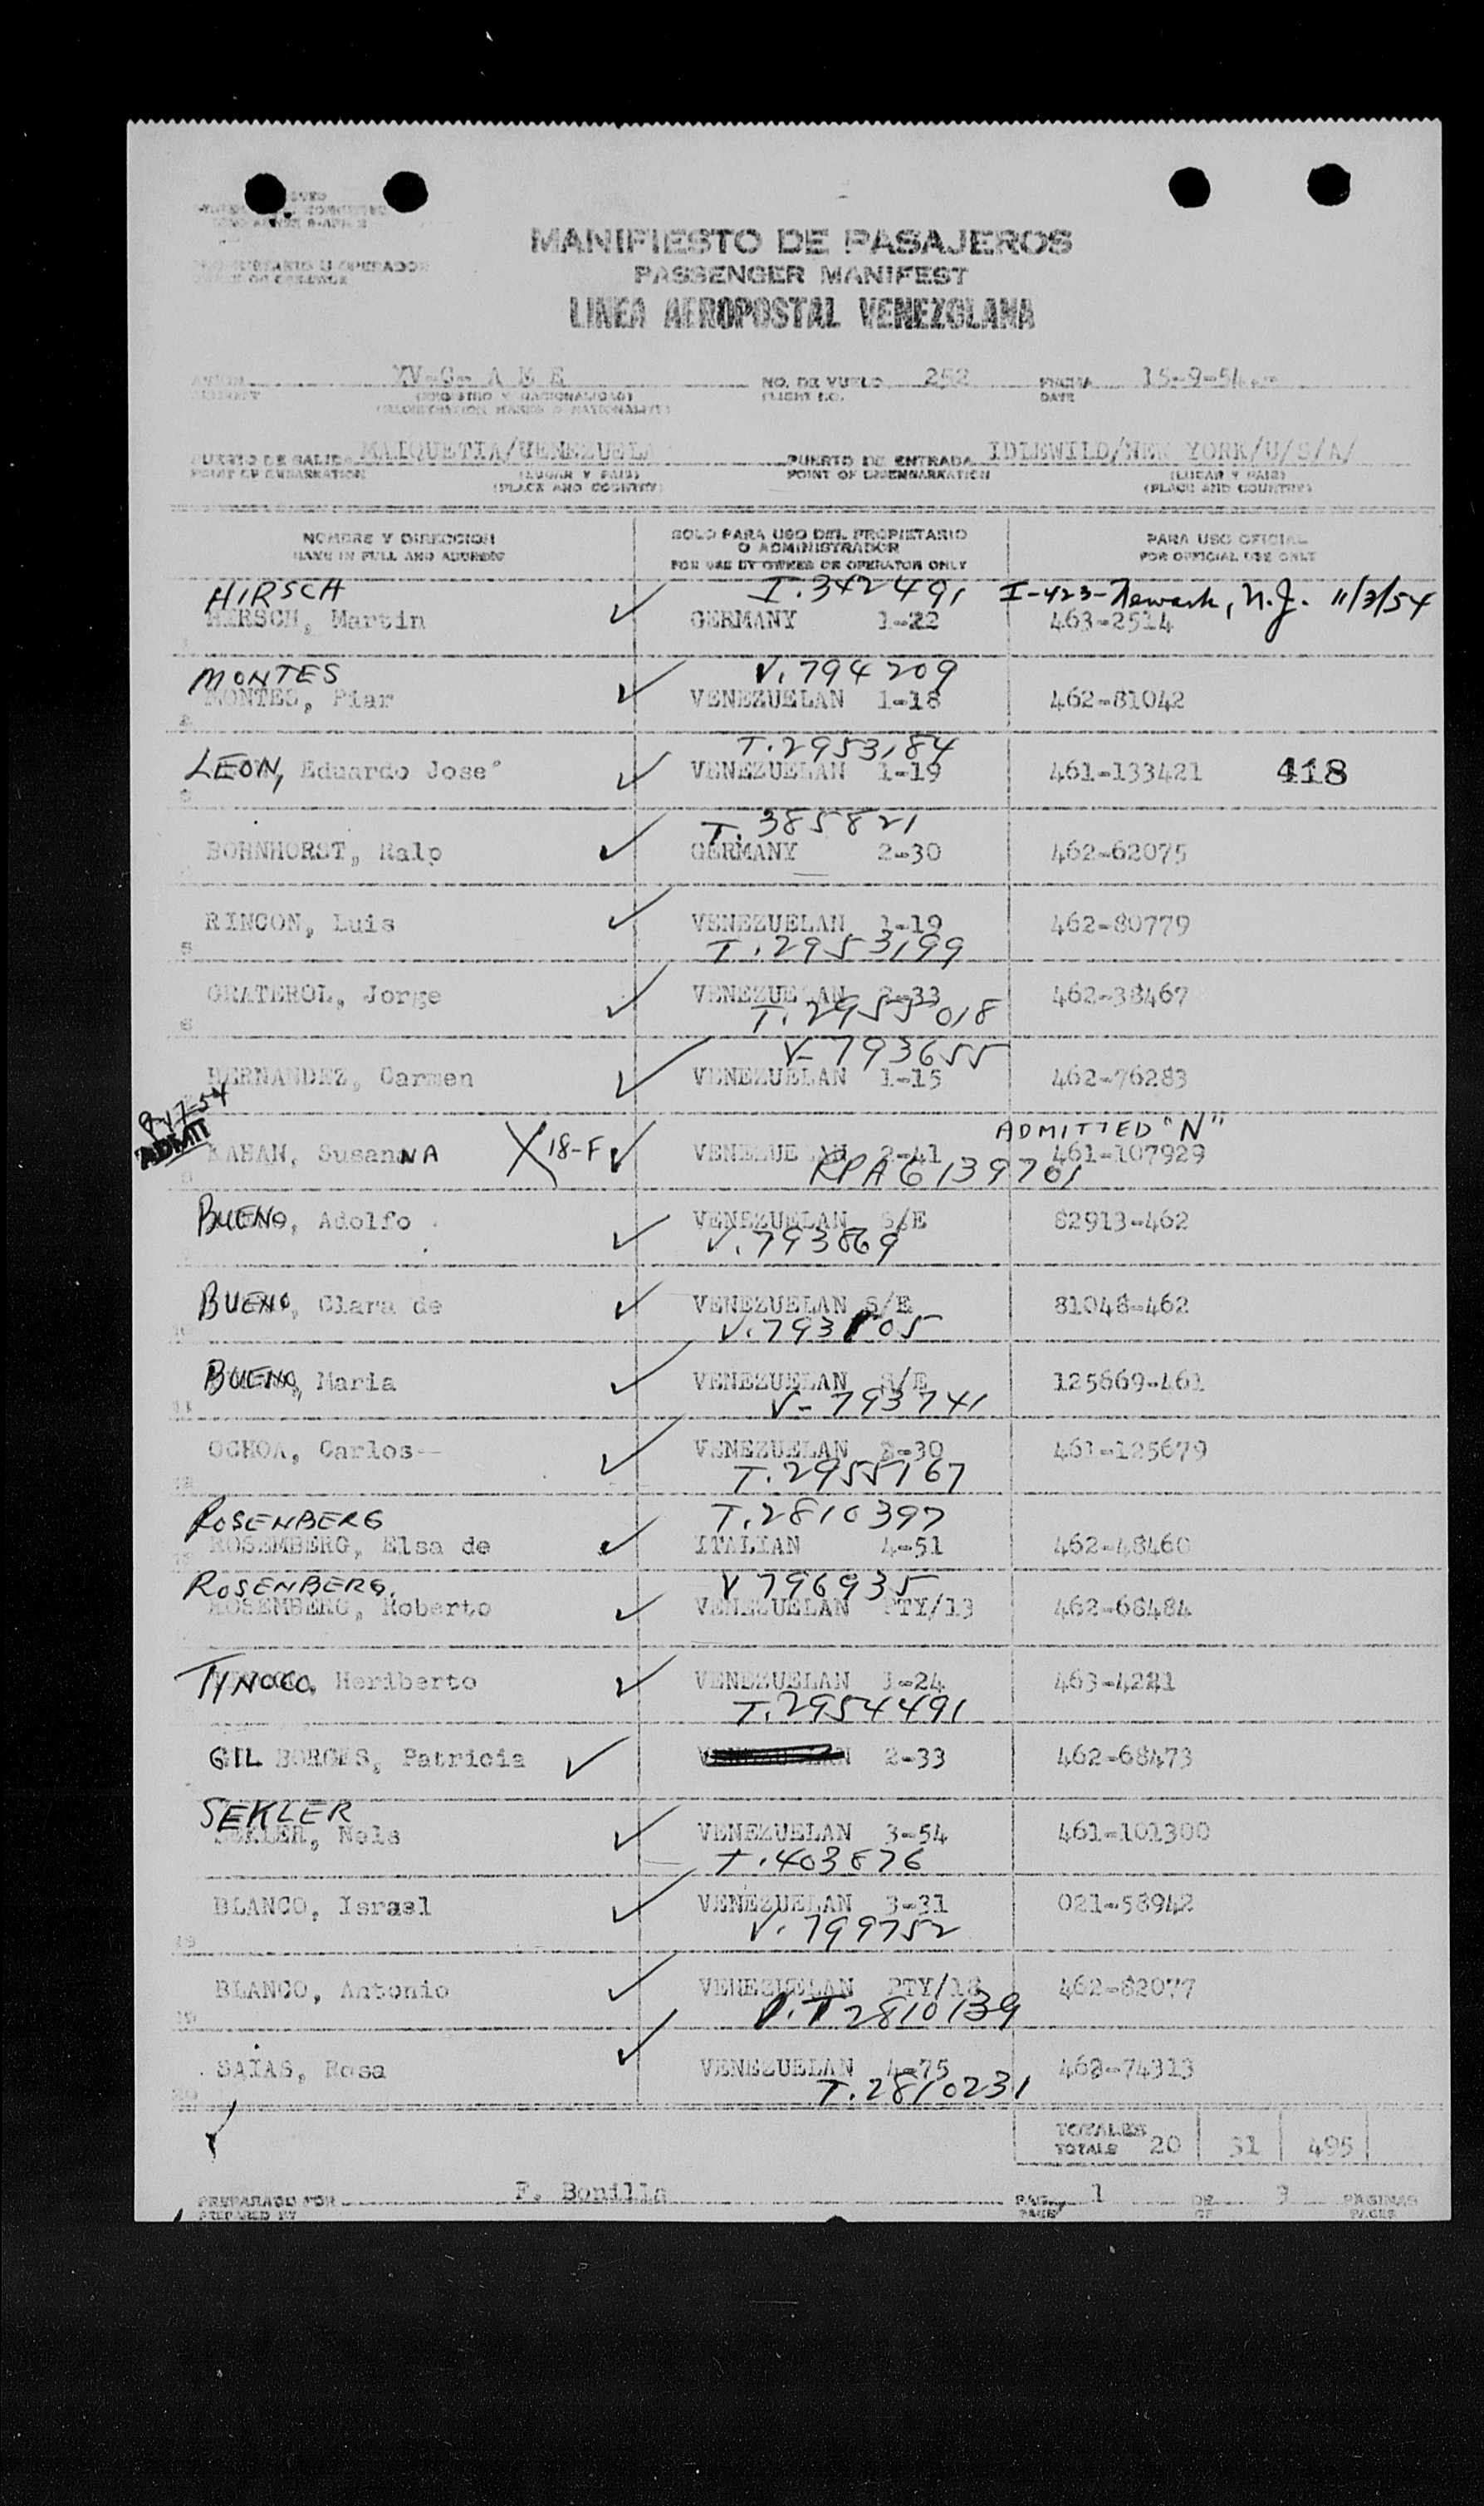 MANIFIESTO DE PASAJEROS
PASSENGER MANIFEST
LINEA AEROPOSTAL VENEZOLANA
YV-C- A M E NO. DE VUELO 252 FECHA 15-9-54.-
(REGISTRO Y NACIONALIDAD) FLIGHT NO. DATE
(REGISTRATION MARKS & NATIONALITY)
PUERTO DE SALIDA MAIQUETIA/VENEZUELA PUERTO DE ENTRADA IDLEWILD/NEW YORK/U/S/A/
POINT OF EMBARKATION (LUGAR Y PAIS) POINT OF DISEMBARKATION (LUGAR Y PAIS)
(PLACE AND COUNTRY) (PLACE AND COUNTRY)
NOMBRE Y DIRECCION SOLO PARA USO DEL PROPIETARIO PARA USO OFICIAL
NAME IN FULL AND ADDRESS O ADMINISTRADOR FOR OFFICIAL USE ONLY
FOR USE BY OWNER OR OPERATOR ONLY
HIRSCH T.342491 I-423-Newark, N.J. 11/3/54
HIRSCH, Martin GERMANY 1-22 463-2514
MONTES V.794209
MONTES, Piar VENEZUELAN 1-18 462-81042
T.2953184
LEON, Eduardo Jose° VENEZUELAN 1-19 461-133421 418
T. 385821
BOHNHORST, Ralp GERMANY 2-30 462-62075
RINCON, Luis VENEZUELAN 1-19 462-80779
5 T.2953199
GRATEROL, Jorge VENEZUELAN 2-33 462-38467
6 T.2955018
V-793655
HERNANDEZ, Carmen VENEZUELAN 1-15 462-76283
9-17-54 ADMITTED "N"
ADMIT KAHAN, SusanNA X 18-F VENEZUELAN 2-41 461-107929
RPA 6139701
BUENO, Adolfo VENEZUELAN S/E 82913-462
V.793869
BUENO, Clara de VENEZUELAN S/E 81048-462
V.793105
BUENO, Maria VENEZUELAN S/E 125669-461
11 V-793741
OCHOA, Carlos VENEZUELAN 2-30 461-125679
12 T.2955167
ROSENBERG T.2810397
ROSEMBERG, Elsa de ITALIAN 4-51 462-48460
ROSENBERG. V 796935
ROSEMBERG, Roberto VENEZUELAN PTY/13 462-68484
TYNOCO, Heriberto VENEZUELAN 3-24 463-4221
T.2954491
GIL BORGES, Patricia 2-33 462-68473
SEKLER
SEKLER, Nels VENEZUELAN 3-54 461-101300
T.403876
BLANCO, Israel VENEZUELAN 3-31 021-58942
V.799752
BLANCO, Antonio VENEZUELAN PTY/18 462-82077
V.T2810139
SAIAS, Rosa VENEZUELAN 4-75 462-74313
T.2810231
TOTALES
TOTALS 20 31 495
PREPARADO POR F. Bonilla PAG. 1 DE 3 PAGINAS
PREPARED BY PAGE OF PAGES